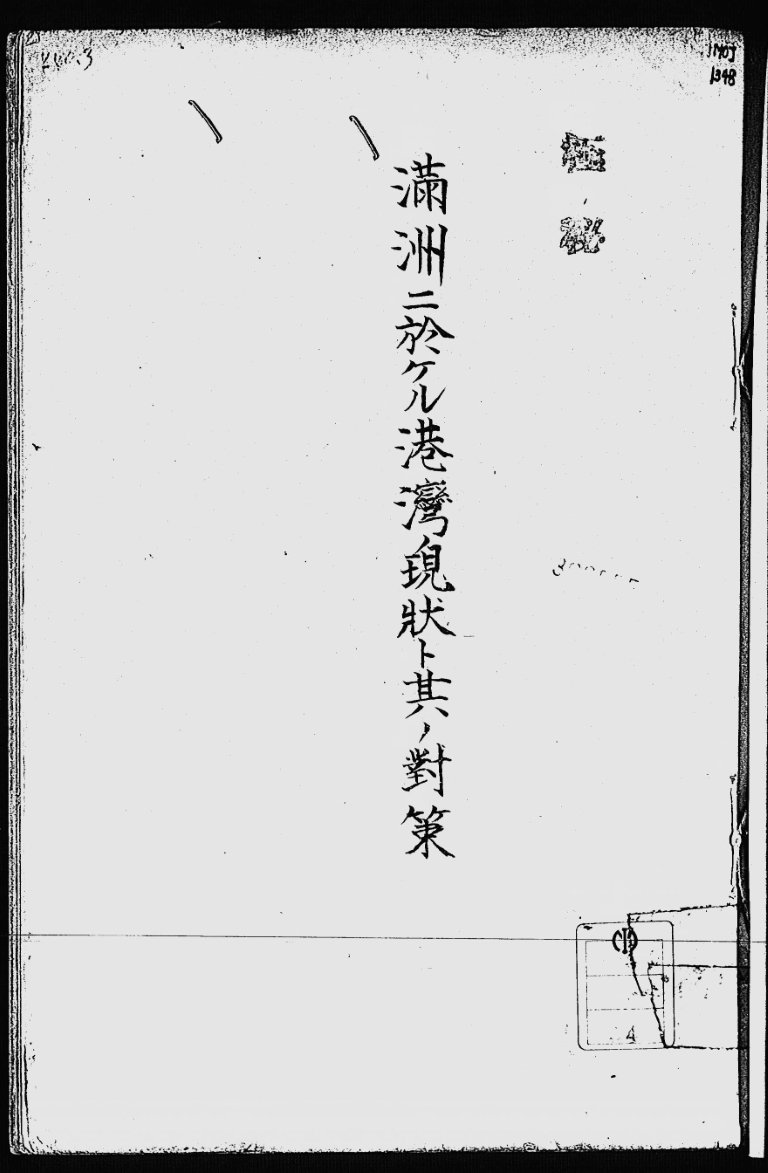 極秘
満洲ニ於ケル港灣現狀ト其ノ對策
1348
(I)
4